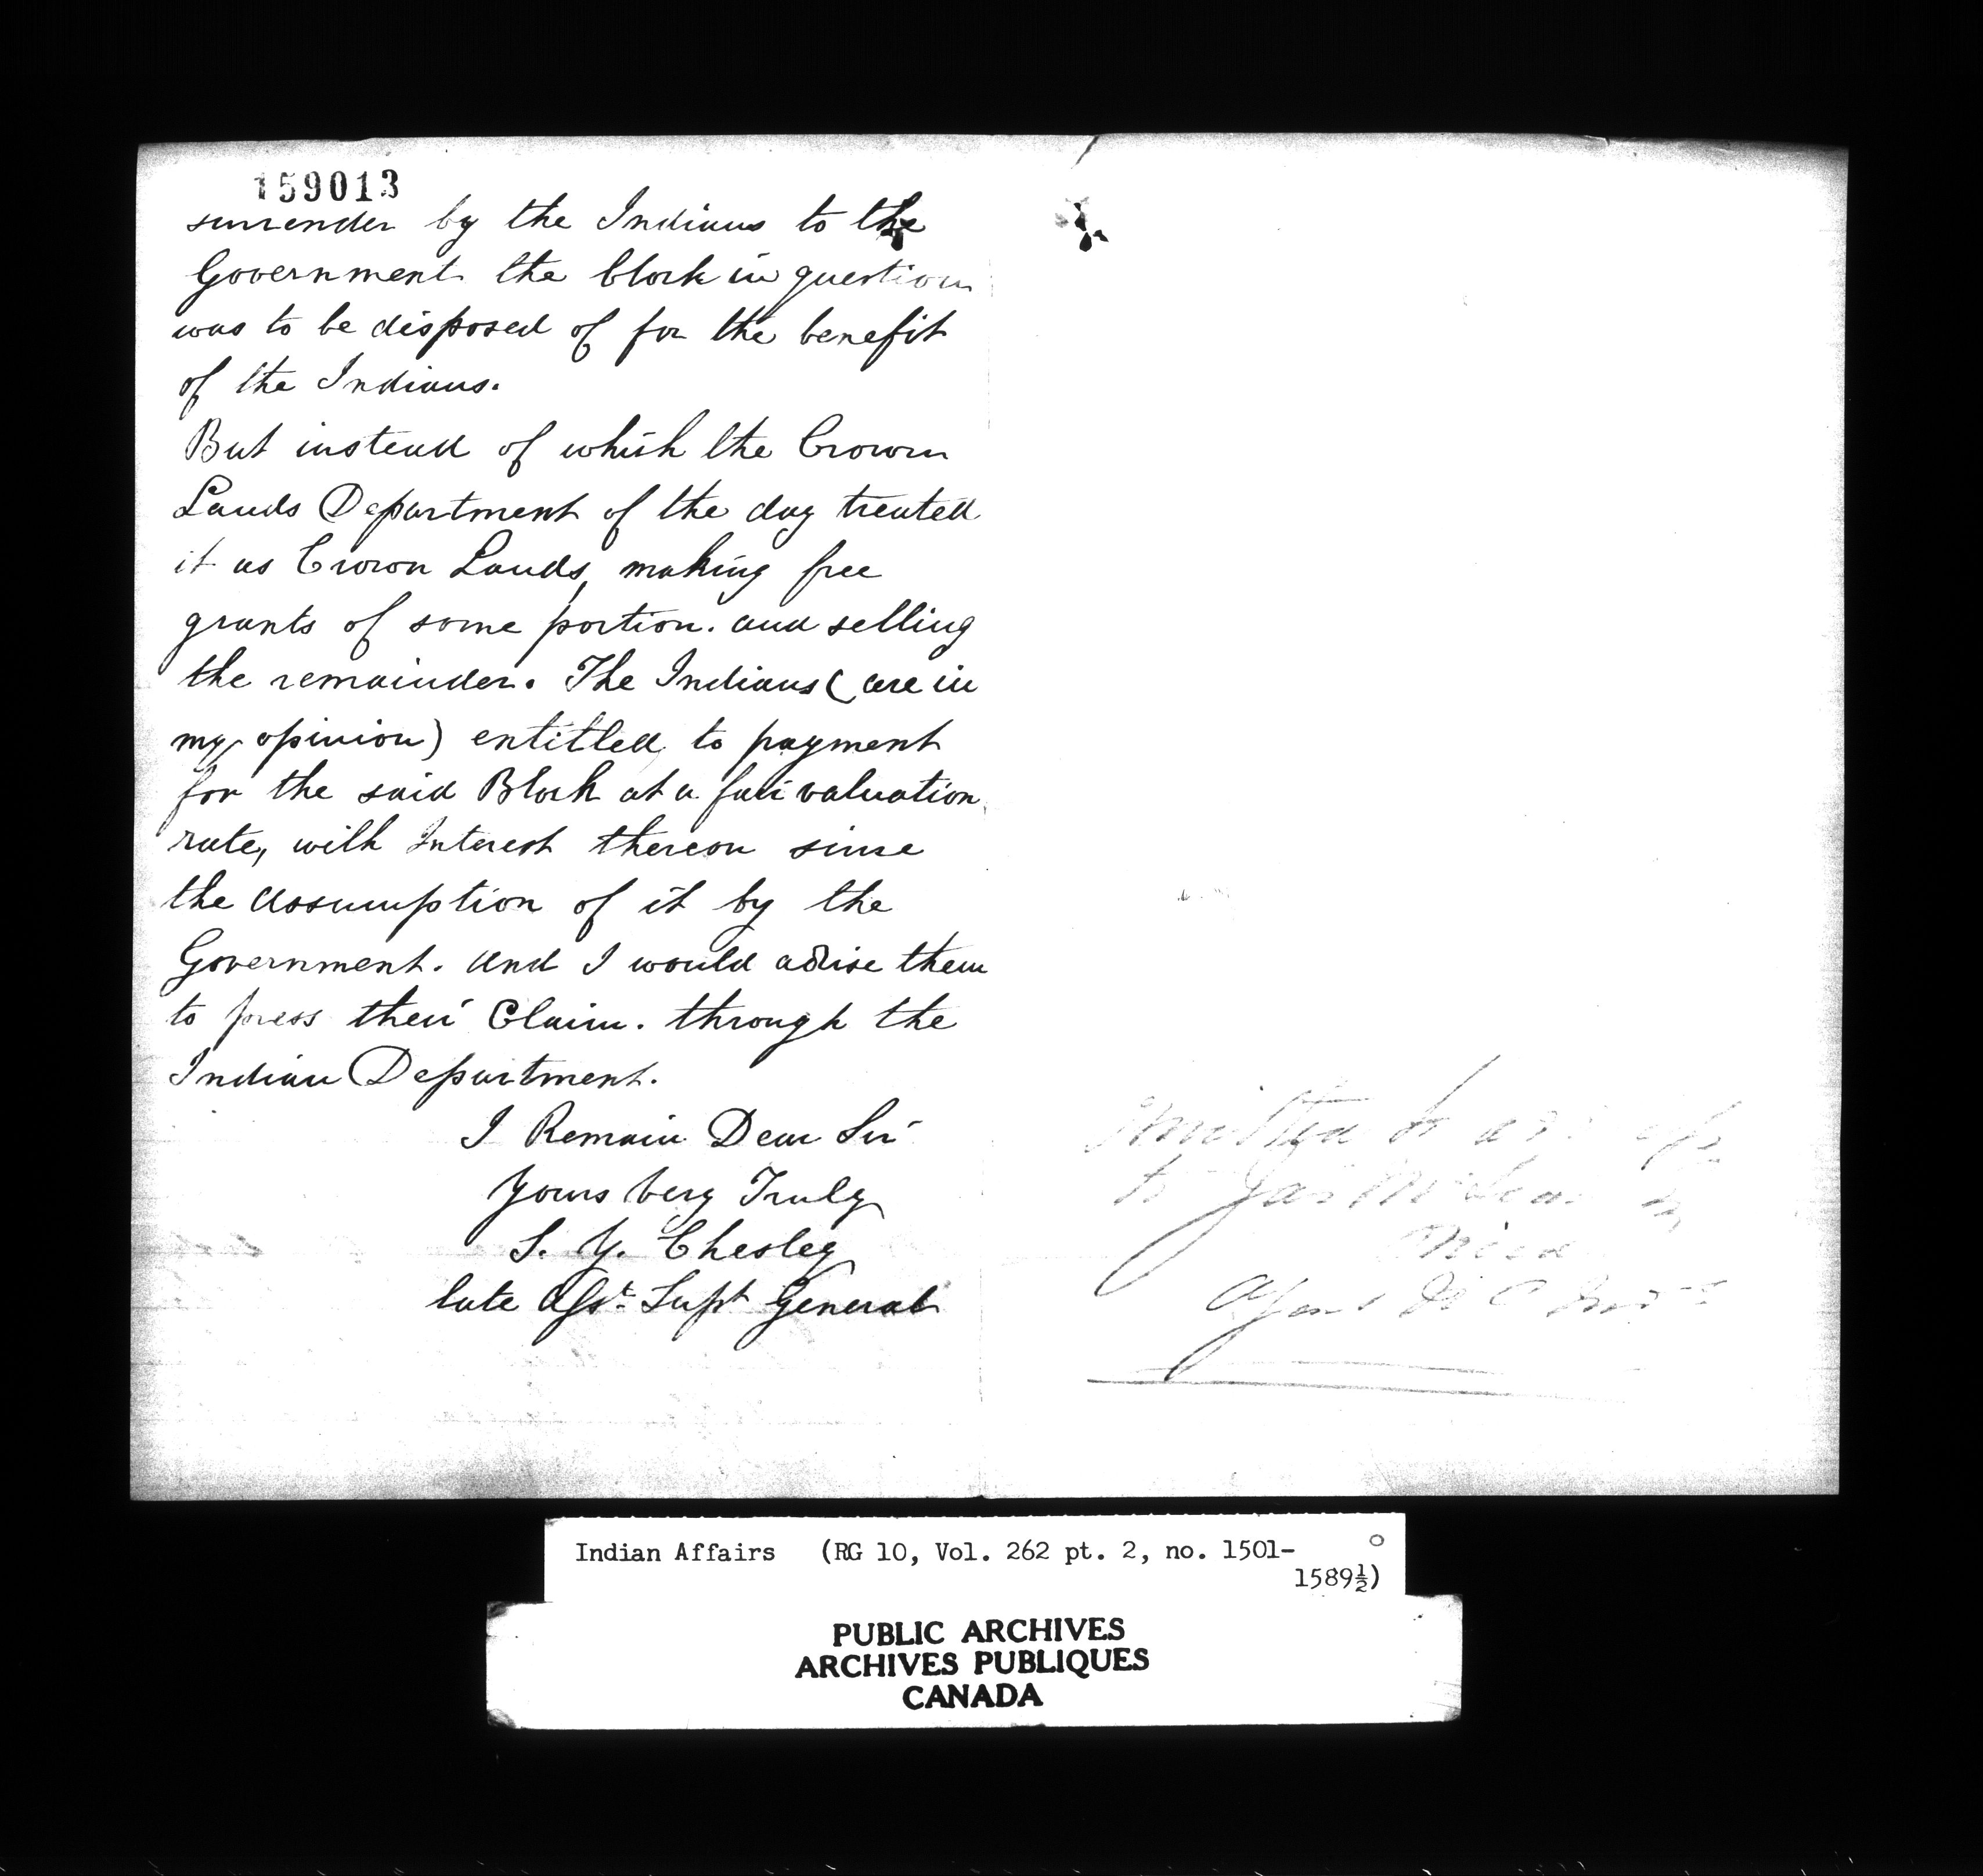 159013
surrender by the Indians to the
Government the block in question
was to be disposed of for the benefit
of the Indians.
But instead of which the Crown
Lands Department of the day treated
it as Crown Lands, making free
grants of some portion. and selling
the remainder. The Indians (are in
my opinion) entitled to payment
for the said Block at a fair valuation
rate, with Interest thereon since
the assumption of it by the
Government. and I would advise them
to press their Claim. through the
Indian Department.
I Remain Dear Sir
Yours very Truly
S. Y. Chesley
late Asst. Supt General
to Jas
Indian Affairs (RG 10, Vol. 262 pt. 2, no. 1501-
1589½)
PUBLIC ARCHIVES
ARCHIVES PUBLIQUES
CANADA